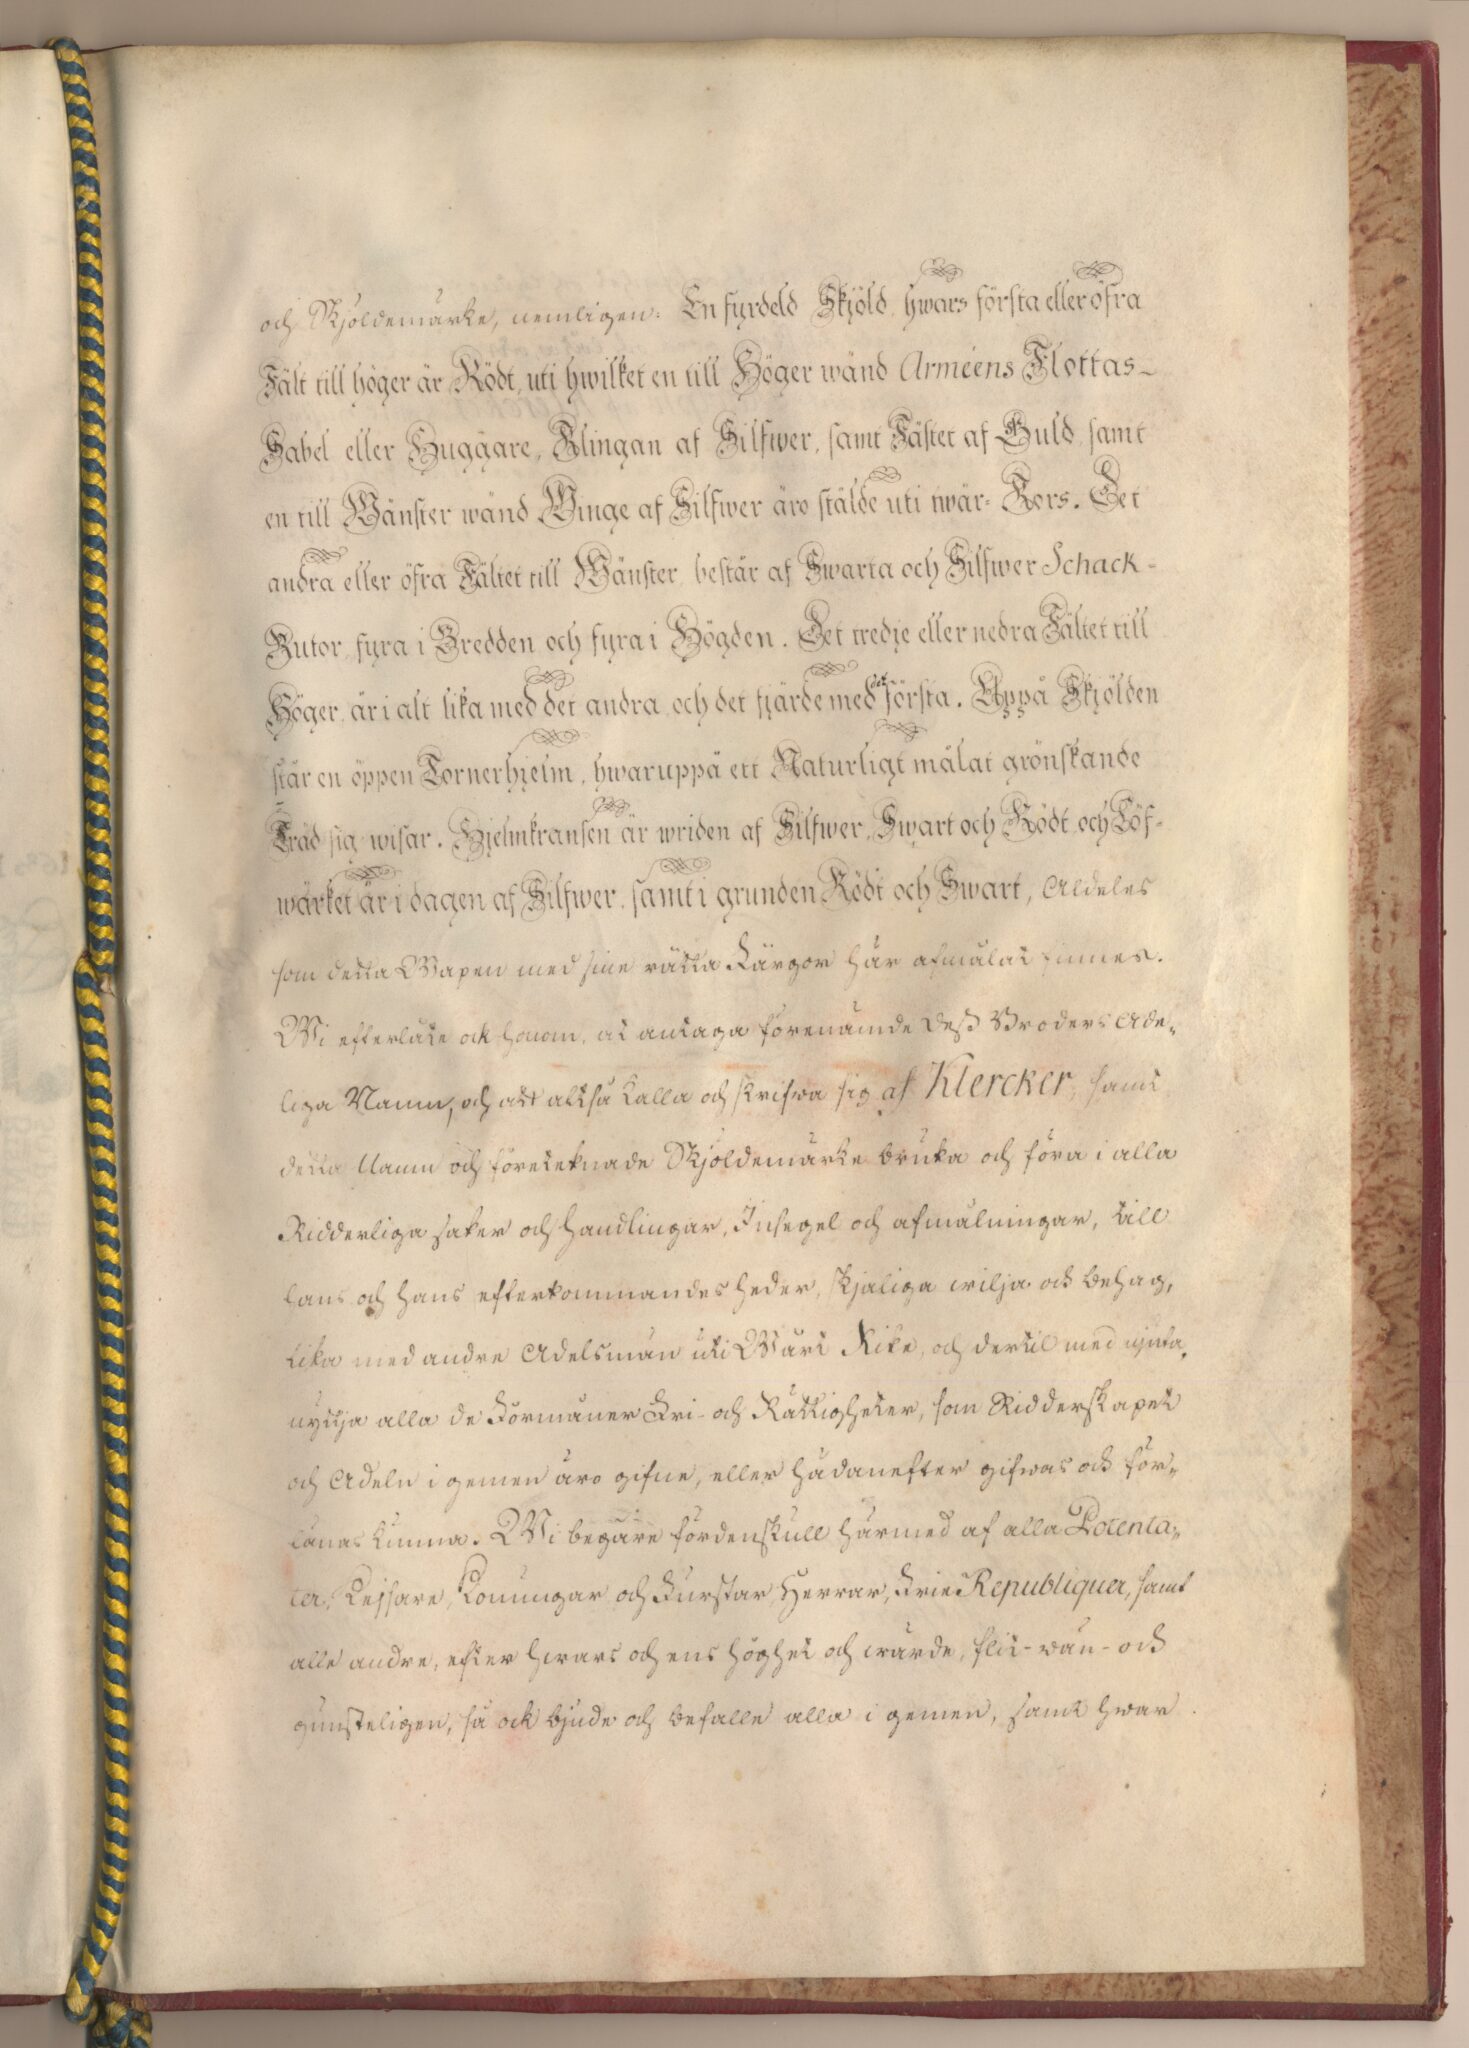 och Skjöldemärke, nemligen: En fyrdeld Skjöld, hwars första eller öfra
Fält till höger är Rödt, uti hwilket en till Höger wänd Arméens Flottas-
Sabel eller Huggare, Klingan af Silfwer, samt Fästet af Guld, samt
en till Wänster wänd Winge af Silfwer äro stälde uti twär-Kors. Det
andra eller öfra Fältet till Wänster, består af Swarta och Silfwer Schack-
Rutor, fyra i Bredden och fyra i Högden. Det tredje eller nedra Fältet till
Höger, är i alt lika med det andra, och det fjärde med det första. Uppå Skjölden
står en öppen Tornerhjelm, hwaruppå ett Naturligt målat grönskande
Träd sig wisar. Hjelmkransen är wriden af Silfwer, Swart och Rödt, och Löf-
wärket är i dagen af Silfwer, samt i grunden Rödt och Swart, Aldeles
som detta Wapen med sine rätta Färgor här afmålat finnes.
Wi efterlåte ock honom, at antaga förenämde Deß Broders Ade-
liga Namn, och att altså kalla och skrifwa sig af Klercker, samt
detta Namn och företeknade Skjöldemärke bruka och föra i alla
Ridderliga saker och handlingar, Insegel och afmålningar, till
hans och hans efterkommandes heder, skjäliga wilja och behag,
lika med andre Adelsmän uti Wårt Rike, och dertil med njuta,
nyttja alla de Förmåner Fri- och Rättigheter, som Ridderskapet
och Adeln i gemen äro gifne, eller hädanefter gifwas och för-
länas kunna. Wi begäre fördenskull härmed af alla Potenta-
ter, Kejsare, Konungar och Furstar, Herrar, Frie Republiquer, samt
alle andre, efter hwars och ens höghet och wärde, flit- wän- och
gunsteligen, så ock bjude och befalle alla i gemen, samt hwar